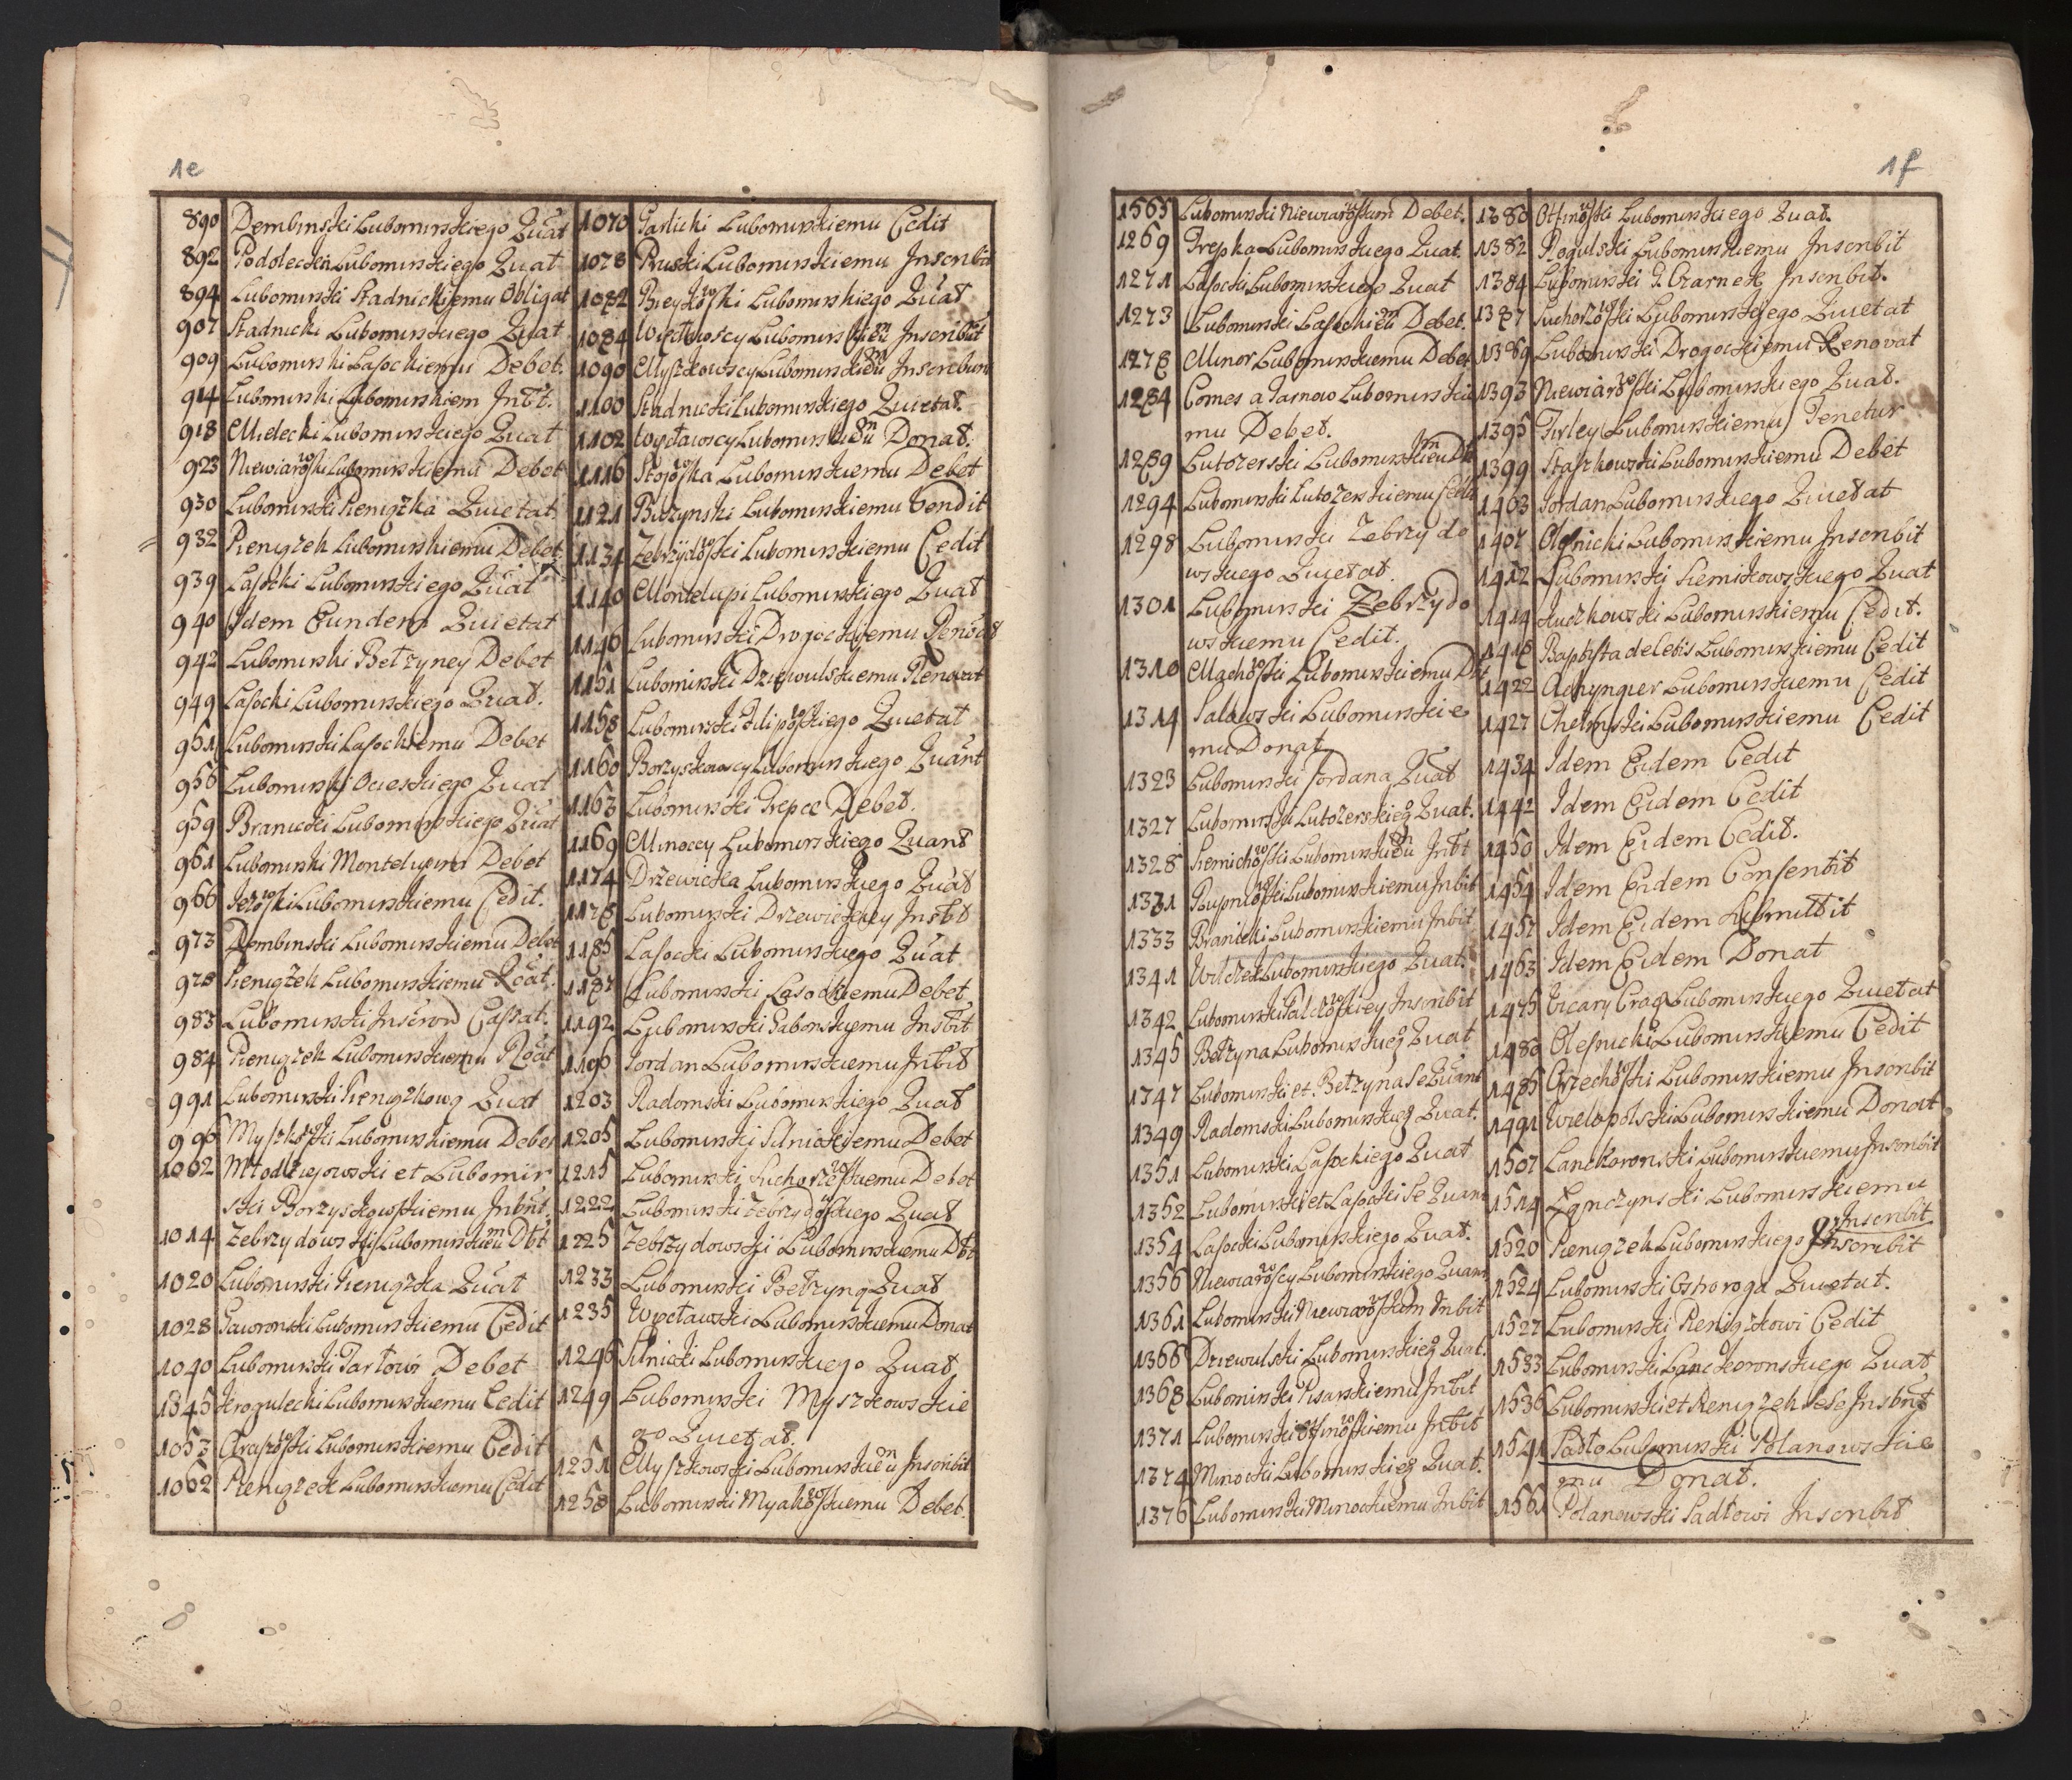 1e
890 Dembinski Lubomirskiego Quat
892 Podolecki Lubomirskiego Quat
894 Lubomirski Stadnickiemu Obligat
907 Stadnicki Lubomirskiego Quat
909 Lubomirski Lasockiemu Debet.
914 Lubomirski Lubomirskiem
918 Mielecki Lubomirskiego Quat
923 Niewiarowski Lubomirskiemu Debet
930 Lubomirski Pieniążka Quietat
932 Pieniążek Lubomirskiemu Debet
939 Lasocki Lubomirskiego Quat
940 Idem Eundem Quietat
942 Lubomirski Betzyney Debet
949 Lasocki Lubomirskiego Quat.
951 Lubomirski Lasockiemu Debet
956 Lubomirski Ocieskiego Quat
959 Branicki Lubomirskiego Quat
961 Lubomirski Debet
966 Lubomirskiemu Cedit.
973 Dembinski Lubomirskiemu Debet
978 Pieniążek Lubomirskiemu Rōat.
983 Lubomirski Cassat.
984 Pieniążek Lubomirskiemu Rōat
991 Lubomirski Pieniążkową Quat
996 Myszkowski Lubomirskiemu Debet
1002 Młodziejowski et Lubomir
ski Borzyskowskiemu Inbnt.
1014 Zebrzydowski Lubomirskieu Dbt
1020 Lubomirski Pieniążka Quat
1028 Gaworonski Lubomirskiemu Cedit
1040 Lubomirski Tarłowi Debet
1045 Lubomirskiemu Cedit
1053 Lubomirskiemu Cedit
1062 Pieniążek Lubomirskiemu Cedit
1070 Garlicki Lubomirskiemu Cedit
1078 Pruski Lubomirskiemu Inscribit
1082 Lubomirskiego Quat
1084 Lubomirskieu Inscribit
1090 Myszkowscy Lubomirskieu Inscribunt
1100 Stadnicki Lubomirskiego Quietat.
1102 Lubomirskieu Donat.
1116 Lubomirskiemu Debet
1121 Buzynski Lubomirskiemu Vendit
1134 Zebrzydowski Lubomirskiemu Cedit
1140 Montelupi Lubomirskiego Quat
1146 Lubomirski Drogockiemu
1151 Lubomirski Dziewulskiemu Renovat
1158 Lubomirski Filipowskiego Quietat
1160 Borzyskowscy Lubomirskiego Quant
1163 Lubomirski Trepce Debet.
1169 Minoccy Lubomirskiego Quant
1174 Drzewicka Lubomirskiego Quat
1178 Lubomirski Drzewickiey Insbt
1185 Lasocki Lubomirskiego Quat.
1187 Lubomirski Lasockiemu Debet
1192 Lubomirski Gabonskiemu Insbt
1196 Jordan Lubomirskiemu Inbit
1203 Radomski Lubomirskiego Quat
1205 Lubomirski Silnickiemu Debet
1215 Lubomirski Suchorzewskiemu Debet
1222 Lubomirski Zebrzydowskiego Quat
1225 Zebrzydowski Lubomirskiemu Dbt
1233 Lubomirski Betzynę Quat
1235 Lubomirskiemu Donat
1246 Silnicki Lubomirskiego Quat
1249 Lubomirski Myszkowskie
go Quietat.
1251 Myszkowski Lubomirskieu Inscribit
1258 Lubomirski Myakowskiemu Debet.
1f
1565 Lubomirski Debet.
1269 Trepka Lubomirskiego Quat.
1271 Lasocki Lubomirskiego Quat
1273 Lubomirski Lasockieu Debet.
1278 Minor Lubomirskiemu Debet
1284 Comes a Tarnow Lubomirskie
mu Debet.
1289 Lutozerski Lubomirskieu Dbt
1294 Lubomirski Lutozerskiemu
1298 Lubomirski Zebrzydo
wskiego Quietat.
1301 Lubomirski Zebrzydo
wskiemu Cedit.
1310 Lubomirskiemu
1314 Lubomirskie
mu Donat
1323 Lubomirski Jordana Quat
1327 Lubomirski Lutozerskieg Quat.
1328 Lubomirskieu Inbt
1331 Rupniowski Lubomirskiemu Inbit
1333 Branicki Lubomirskiemu Inbit
1341 Wilczek Lubomirskiego Quat.
1342 Lubomirski Inscribit
1345 Betzyna Lubomirskieg Quat
1747 Lubomirski et Betzyna Se Quant
1349 Radomski Lubomirskieg Quat.
1351 Lubomirski Lasockiego Quat
1352 Lubomirski et Lasocki Se Quant
1354 Lasocki Lubomirskiego Quat.
1356 Niewiarowscy Lubomirskiego Quant
1361 Lubomirski Inbit
1366 Dziewulski Lubomirskieg Quat.
1368 Lubomirski Pisarskiemu Inbit
1371 Lubomirski Otfinowskiemu Inbit
1374 Minocki Lubomirskieg Quat.
1376 Lubomirski Minockiemu Inbit
1380 Otfinowski Lubomirskiego Quat.
1382 Rogulski Lubomirskiemu Inscribit
1384 Lubomirski P. Czarnek Inscribit.
1387 Suchorzowski Lubomirskiego Quietat
1389 Lubomirski Drogockiemu Renovat
1393 Niewiarowski Lubomirskiego Quat.
1395 Firley Lubomirskiemu Tenetur
1399 Staszkowski Lubomirskiemu Debet
1403 Jordan Lubomirskiego Quietat
1407 Olesnicki Lubomirskiemu Inscribit
1412 Lubomirski Siemikowskiego Quat
1414 Ruczkowski Lubomirskiemu Cedit.
1418 Baptista de Lubomirskiemu Cedit
1422 Achynger Lubomirskiemu Cedit
1427 Chelmski Lubomirskiemu Cedit
1434 Idem Eidem Cedit
1442 Idem Eidem Cedit
1450 Idem Eidem Cedit.
1454 Idem Eidem Consentit
1457 Idem Eidem Submittit
1463 Idem Eidem Donat
1475 Vicary Lubomirskiego Quietat
1480 Olesnicki Lubomirskiemu Cedit
1485 Orzechowski Lubomirskiemu Inscribit
1491 Wielopolski Lubomirskiemu Donat
1507 Lanckoronski Lubomirskiemu Inscribit
1514 Łęnczynski Lubomirskiemu
Inscribit
1520 Pieniążek Lubomirskiego Inscribit
1524 Lubomirski Ostroroga Quietat.
1527 Lubomirski Pieniążkowi Cedit
1533 Lubomirski Lanckoronskiego Quat
1536 Lubomirski et Pieniążek sese Insbnt
1541 Sadło Lubomirski Polanowskie
mu Donat.
1561 Polanowski Sadłowi Inscribit